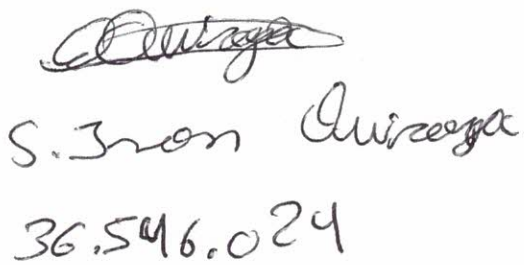 Quiroga
S. Ivan Quiroga
36.546.024